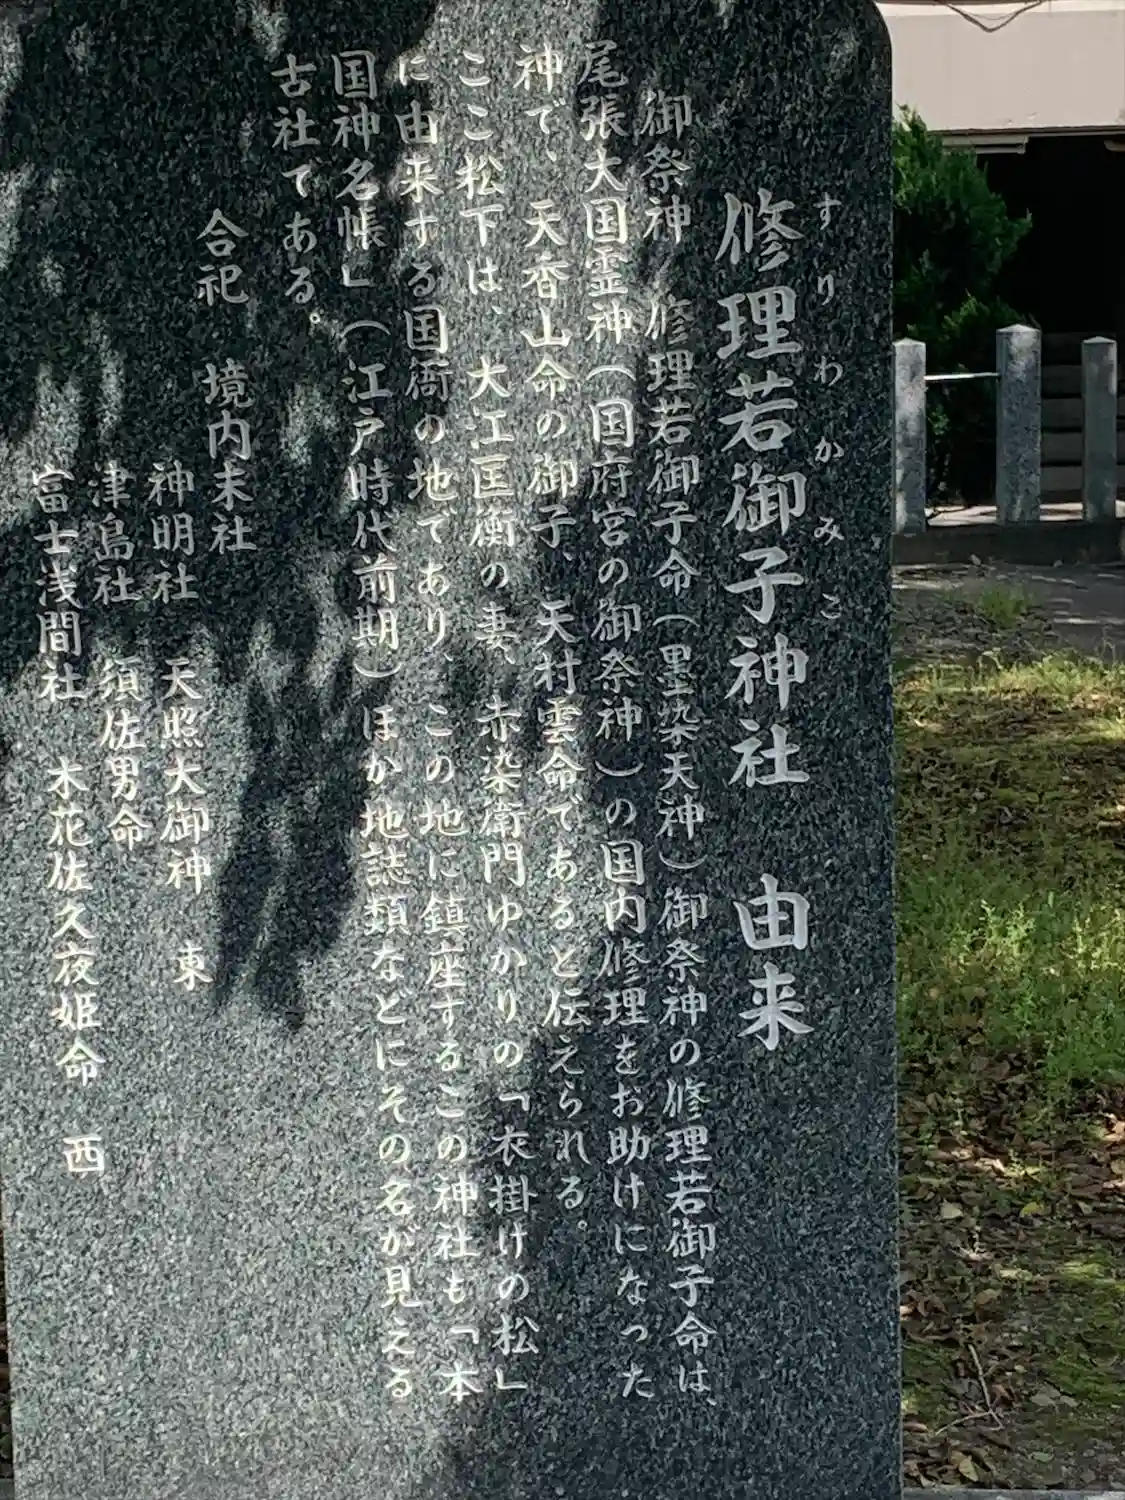 すりわかみこ
修理若御子神社　由来
御祭神　修理若御子命（墨染天神）御祭神の修理若御子命は、
尾張大国霊神（国府宮の御祭神）の国内修理をお助けになった
神で、天香山命の御子、天村雲命であると伝えられる。
ここ松下は、大江匡衡の妻、赤染衛門ゆかりの「衣掛けの松」
に由来する国衙の地であり、この地に鎮座するこの神社も「本
国神名帳」（江戸時代前期）ほか地誌類などにその名が見える
古社である。
合祀　境内末社
神明社　天照大御神　東
津島社　須佐男命
富士浅間社　木花佐久夜姫命　西